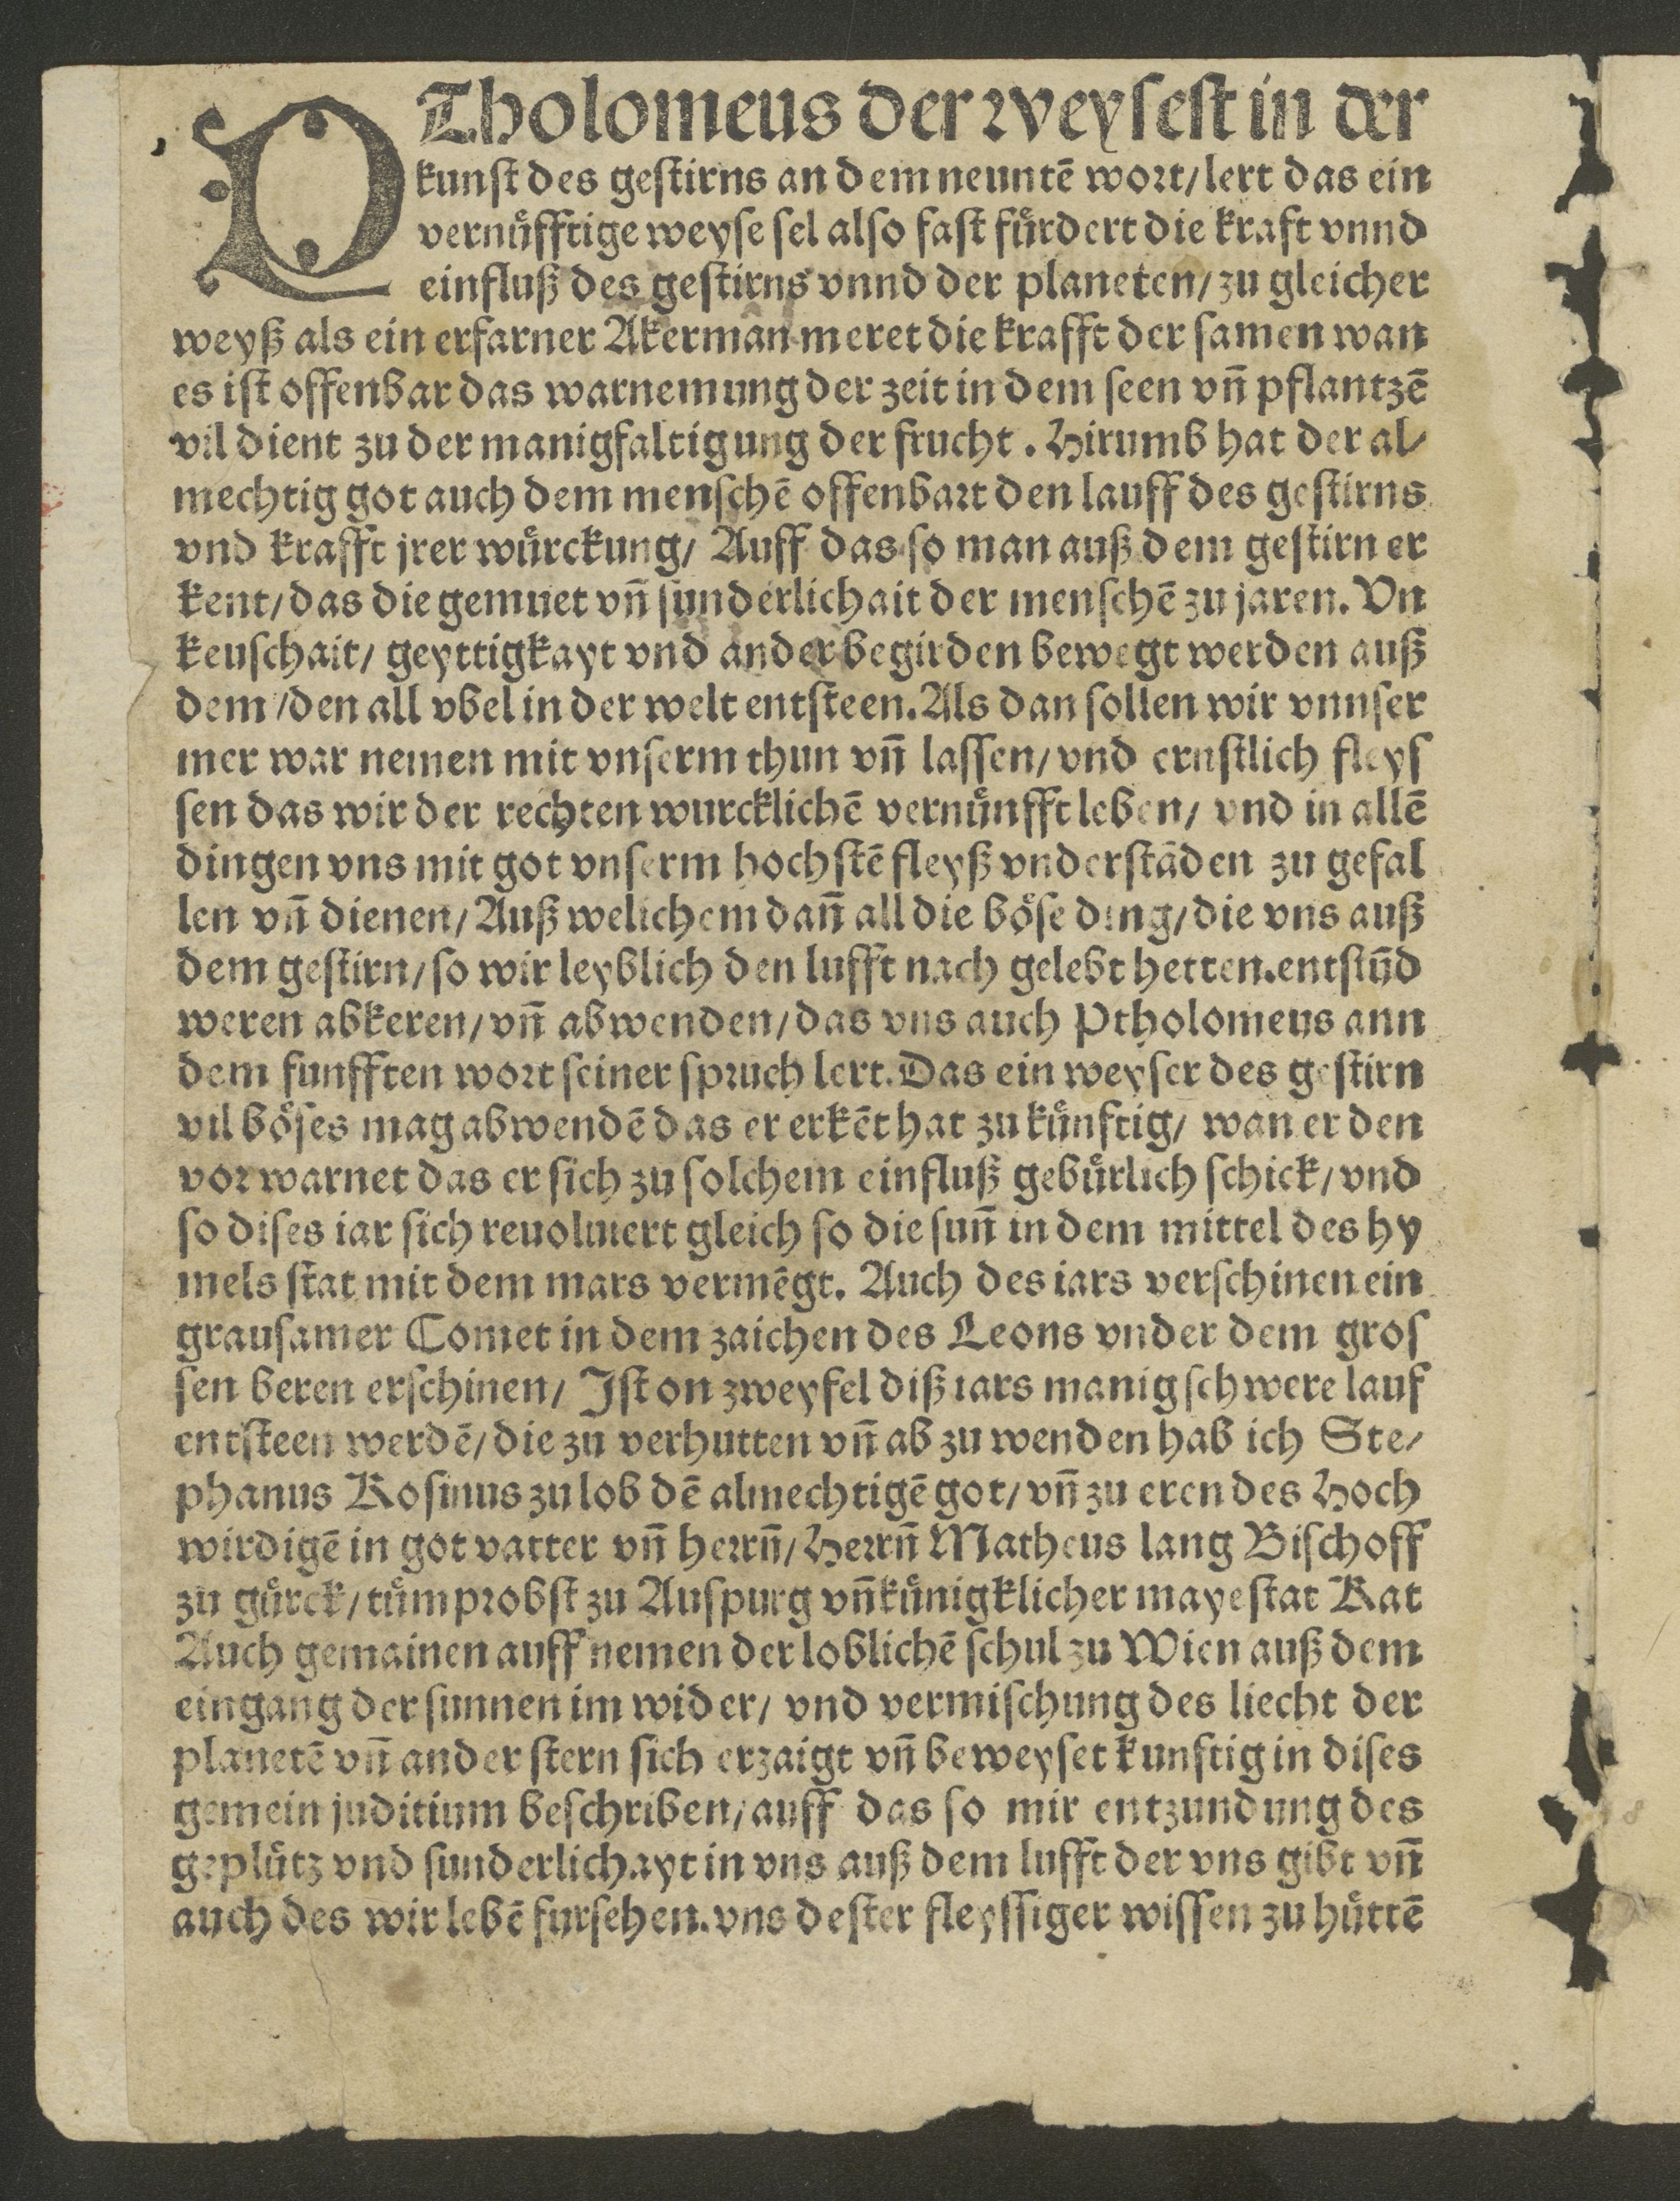 PTholomeus der weysest in der
kunst des gestirns an dem neuntē wort/lert das ein
vernüfftige weyse sel also fast fürdert die kraft vnnd
einfluß des gestirns vnnd der planeten/zu gleicher
weyß als ein erfarner Akerman meret die krafft der samen wan
es ist offenbar das warnemung der zeit in dem seen vn̄ pflantzē
vil dient zu der manigfaltigung der frucht. Hirumb hat der al/
mechtig got auch dem menschē offenbart den lauff des gestirns
vnd krafft jrer würckung/ Auff das so man auß dem gestirn er
kent/das die gemuet vn̄ sunderlichait der menschē zu jaren. Vn
keuschait/ geyttigkayt vnd ander begirden bewegt werden auß
dem/den all vbel in der welt entsteen. Als dan sollen wir vnnser
mer war nemen mit vnserm thun vn̄ lassen/vnd ernstlich fleys
sen das wir der rechten wurcklichē vernünfft leben/ vnd in allē
dingen vns mit got vnserm hochstē fleyß vnderstāden zu gefal
len vn̄ dienen/Auß welichem dan̄ all die böse ding/die vns auß
dem gestirn/so wir leyblich den lufft nach gelebt hetten.entstūd
weren abkeren/vn̄ abwenden/das vns auch Ptholomeus ann
dem funfften wort seiner spruch lert. Das ein weyser des gestirn
vil böses mag abwendē das er erkēt hat zu künftig/ wan er den
vor warnet das er sich zu solchem einfluß gebürlich schick/vnd
so dises iar sich reuoluiert gleich so die sun̄ in dem mittel des hy
mels stat mit dem mars vermēgt. Auch des iars verschinen ein
grausamer Comet in dem zaichen des Leons vnder dem gros
sen beren erschinen/ Ist on zweyfel diß iars manig schwere lauf
entsteen werdē/die zu verhutten vn̄ ab zu wenden hab ich Ste/
phanus Rosinus zu lob dē almechtigē got/vn̄ zu eren des Hoch
wirdigē in got vatter vn̄ herrn̄/Herrn̄ Matheus lang Bischoff
zu gürck/tümprobst zu Auspurg vn̄ künigklicher mayestat Rat
Auch gemainen auff nemen der loblichē schul zu Wien auß dem
eingang der sunnen im wider/ vnd vermischung des liecht der
planetē vn̄ ander stern sich erzaigt vn̄ beweyset kunftig in dises
gemein juditium beschriben/auff das so mir entzundung des
geplütz vnd sunderlichayt in vns auß dem lufft der vns gibt vn̄
auch des wir lebē fursehen.vns dester fleyssiger wissen zu hüttē